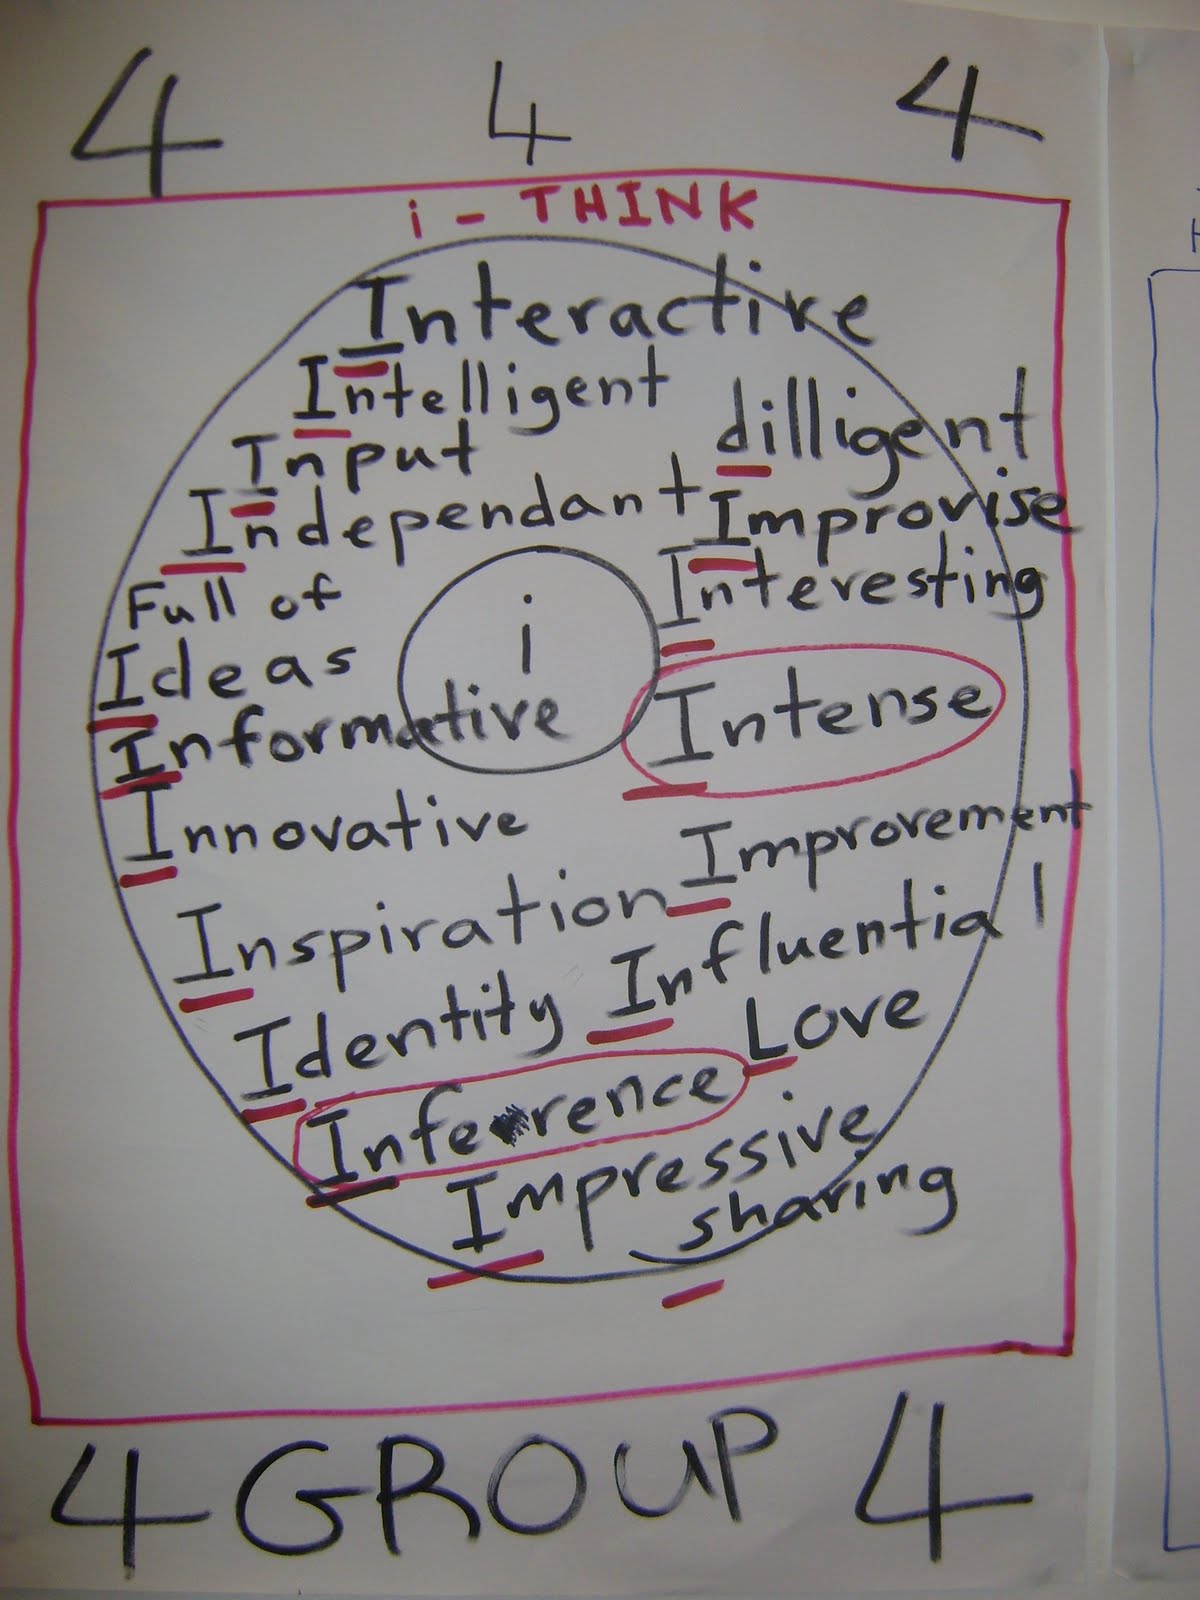 4 4 4
i - THINK
Interactive
Intelligent
dilligent
Input
Independant
Improvise
Full of
Interesting
Ideas
i
Intense
Informative
Innovative
Improvement
Inspiration
Influential
Identity
Love
Inference
Impressive
sharing
4 GROUP 4